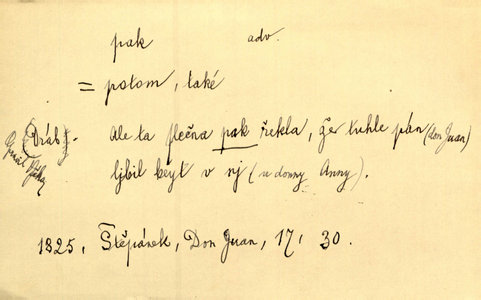 pak adv.
= potom, také
(Dráb). Ale ta slečna pak řekla, že tuhle pán (don Juan)
ljbil beyt v nj (u donny Anny).
1825, Štěpánek, Don Juan, 17, 30.